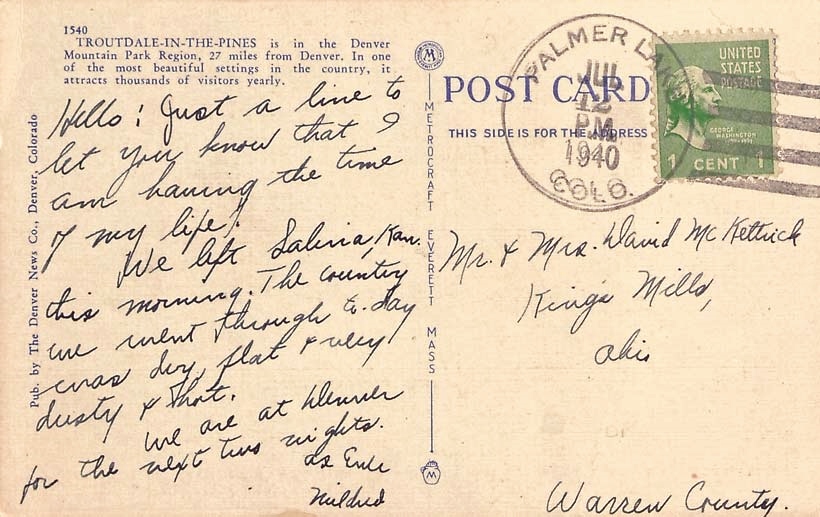 1540
TROUTDALE-IN-THE-PINES is in the Denver
Mountain Park Region, 27 miles from Denver. In one
of the most beautiful settings in the country, it
attracts thousands of visitors yearly.
Pub. by The Denver News Co., Denver, Colorado
Hello! Just a line to
let you know that I
am having the time
of my life!
We left Salina, Kan.
this morning. The country
we went through to-day
was dry, flat & very
dusty & hot.
We are at Denver
for the next two nights.
as Ever
Mildred
METROCRAFT EVERETT MASS
POST CARD
THIS SIDE IS FOR THE ADDRESS
PALMER LAKE
JUL
12
P.M.
1940
COLO.
UNITED
STATES
POSTAGE
GEORGE
WASHINGTON
1 CENT 1
Mr. & Mrs. David McKettrick
King's Mills,
Ohio
Warren County.